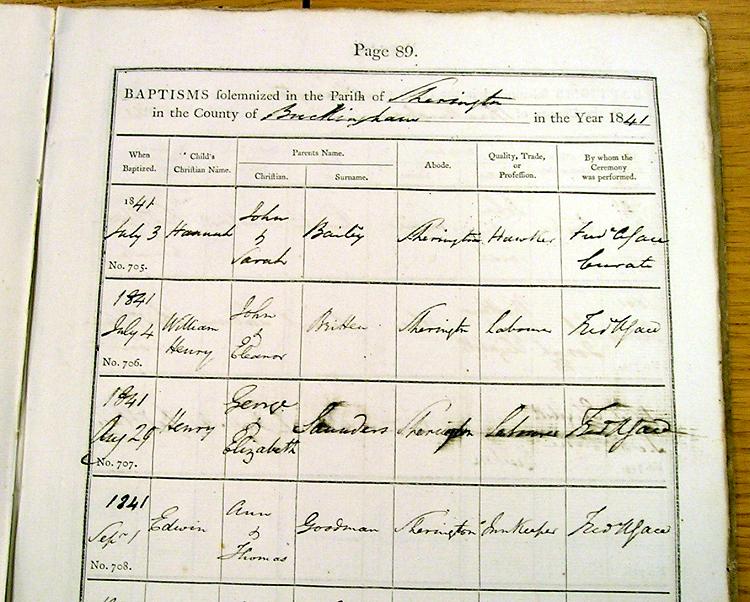 Page 89.
BAPTISMS solemnized in the Parish of Sherington
in the County of Buckingham in the Year 1841
When Baptized. Child's Christian Name. Parents Name. Abode. Quality, Trade, or Profession. By whom the Ceremony was performed.
Christian. Surname.
1841
July 3 Hannah John & Sarah Bailey Sherington Hawker Curate
No. 705.
1841
July 4 William Henry John & Eleanor Britten Sherington Labourer
No. 706.
1841
Aug 29 Henry George & Elizabeth Saunders Sherington Labourer
No. 707.
1841
Sepr 1 Edwin Ann & Thomas Goodman Sherington InnKeeper
No. 708.